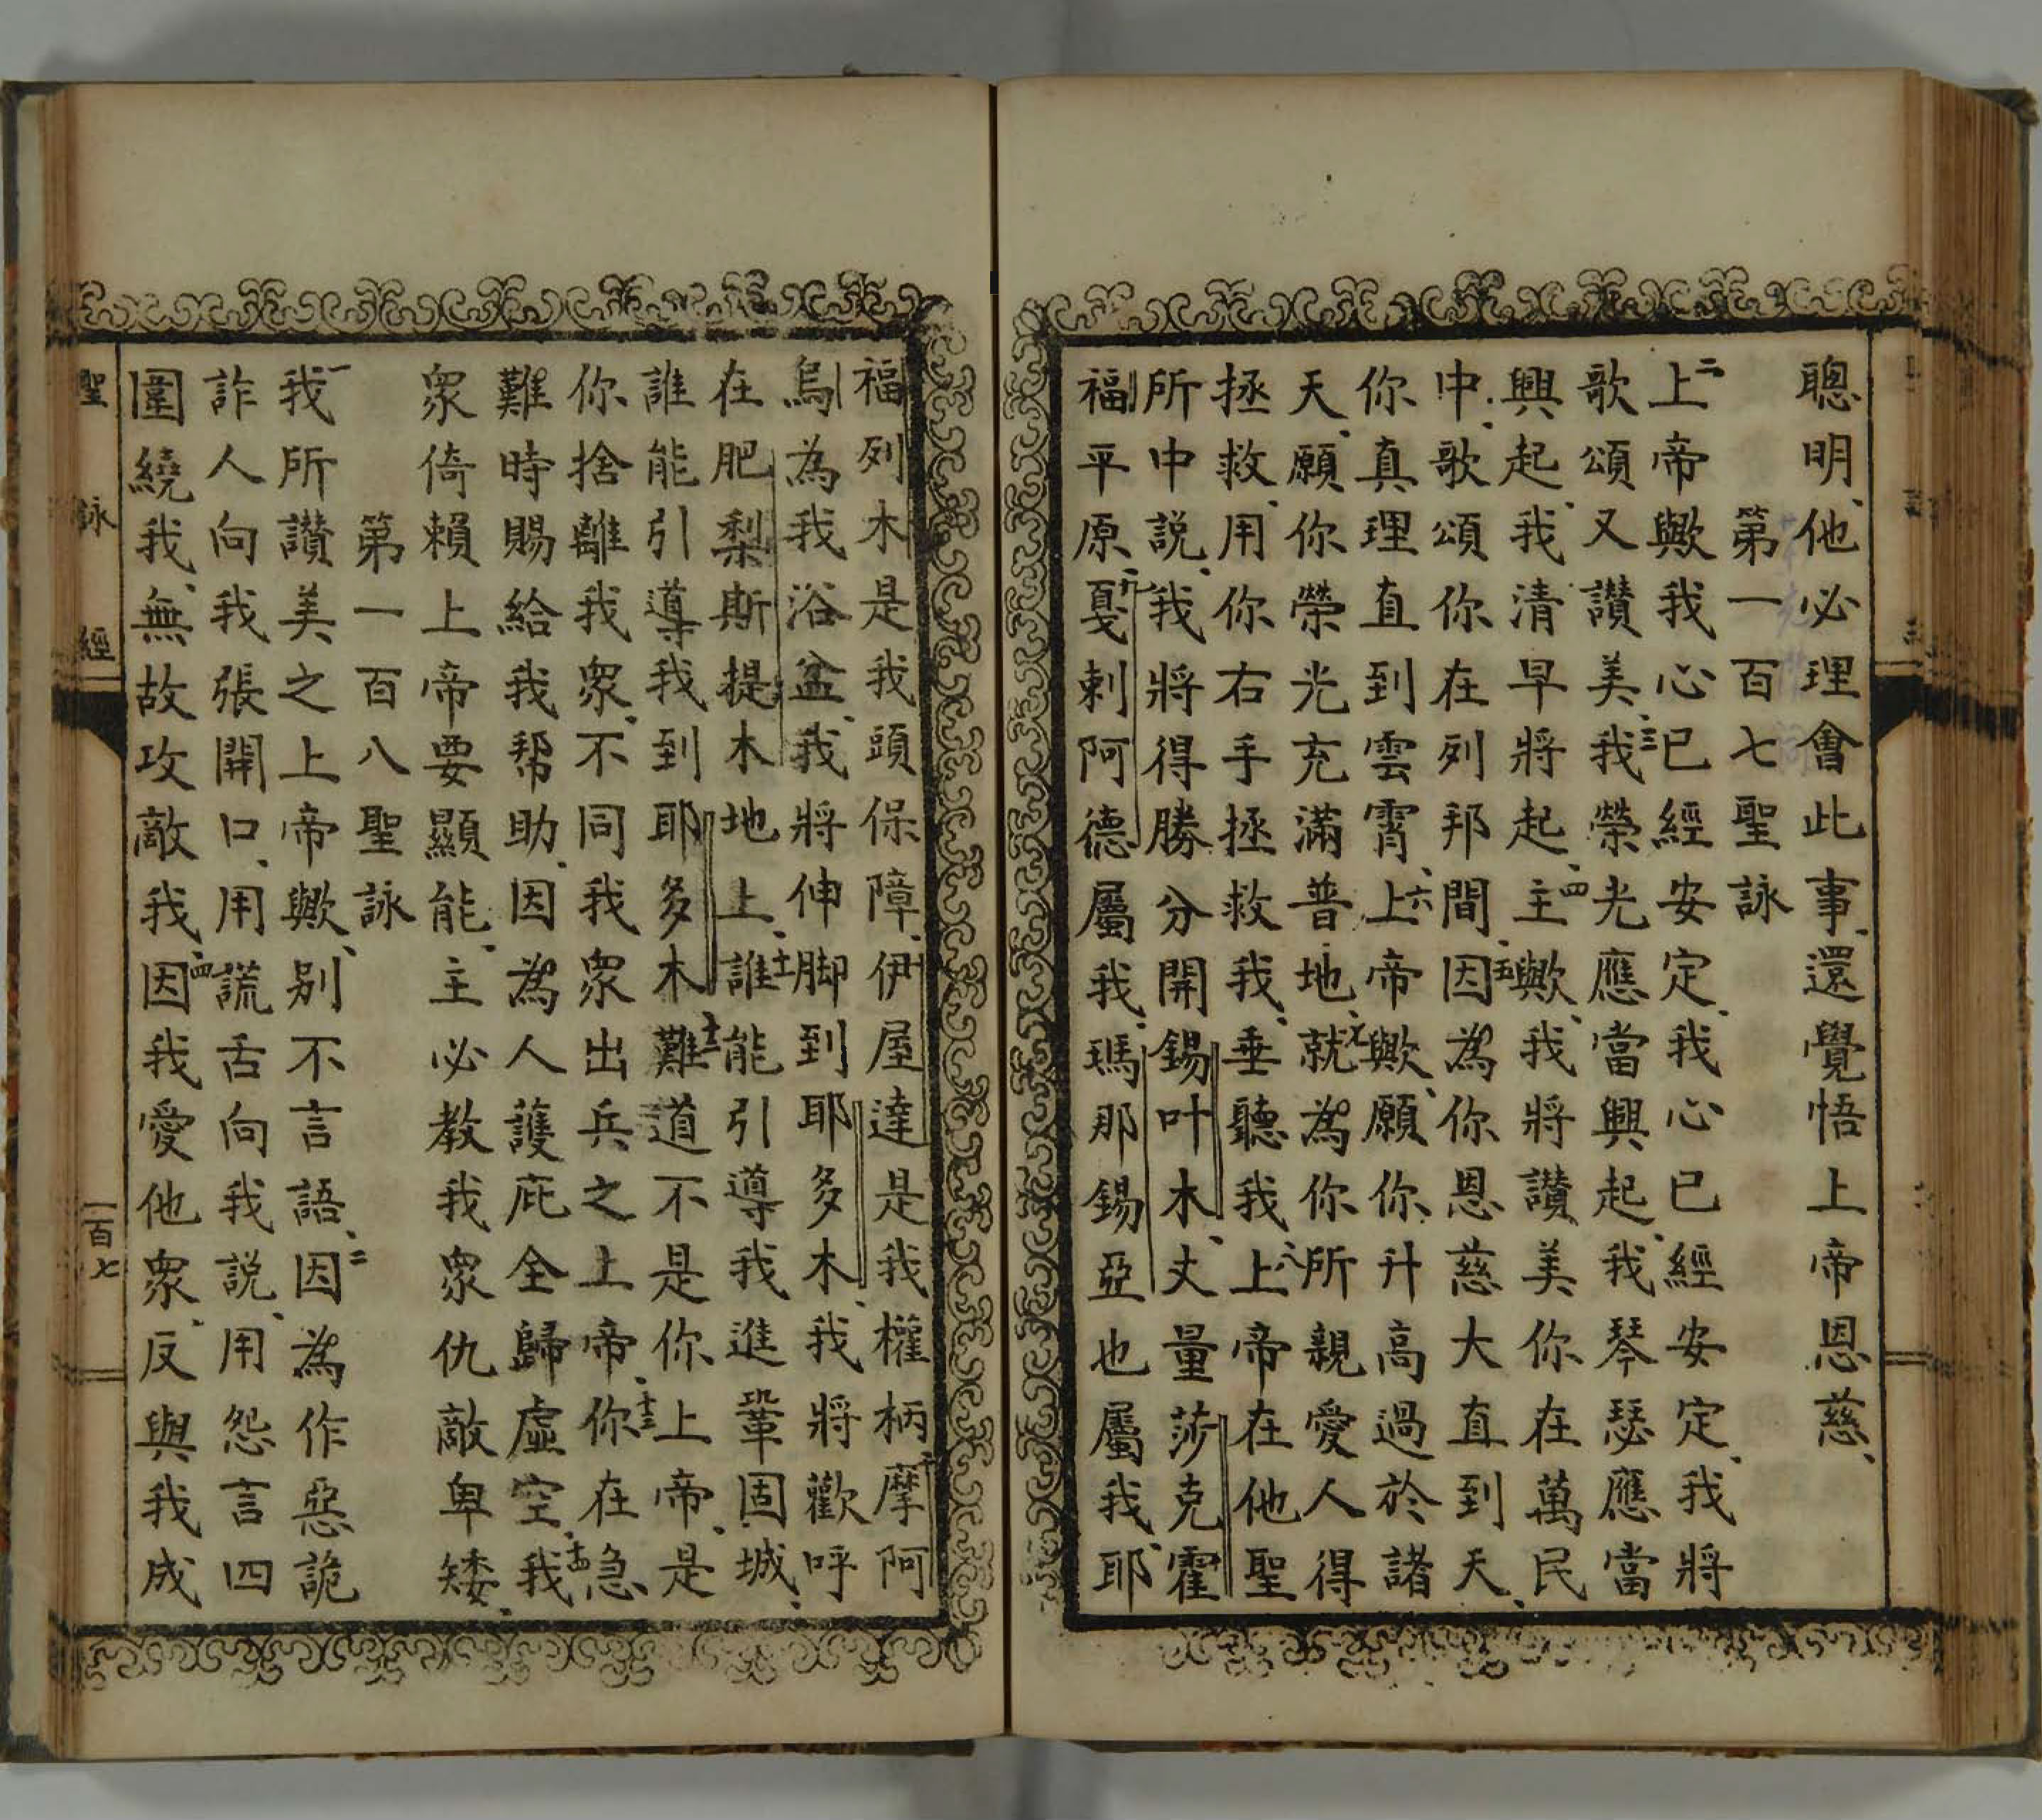 聰明、他必理會此事、還覺悟上帝恩慈、
第一百七聖詠
二上帝歟我心已經安定、我心已經安定、我將
歌頌又讃美、三我榮光應當興起、我琴瑟應當
興起、我清早將起、四主歟、我將讃美你在萬民
中、歌頌你在列邦間、五因為你恩慈大直到天、
你真理直到雲霄、六上帝歟、願你升高過於諸
天、願你榮光充滿普地、七就為你所親愛人得
拯救、用你右手拯救我、垂聽我、八上帝在他聖
所中説、我將得勝分開錫叶木、丈量莎克霍
福平原、九戛剌阿德屬我、瑪那錫亞也屬我、耶
福列木是我頭保障、伊屋達是我權柄、十摩阿
烏為我浴盆、我將伸脚到耶多木、我將歡呼
在肥梨斯提木地上、十一誰能引導我進鞏固城、
誰能引導我到耶多木、十二難道不是你上帝、是
你捨離我衆、不同我衆出兵之上帝、十三你在急
難時賜給我帮助、因為人護庇全歸虛空、十四我
衆倚賴上帝要顯能、主必教我衆仇敵卑矮、
第一百八聖詠
一我所讃美之上帝歟、别不言語、二因為作惡詭
詐人向我張開口、用謊舌向我説、用怨言四
圍繞我、無故攻敵我、四因我愛他衆、反與我成
聖詠經
一百七